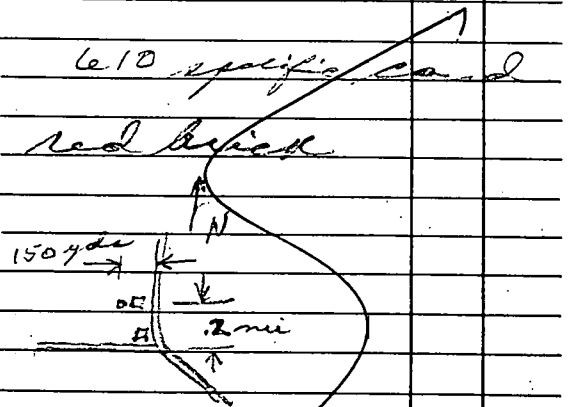 610 specific cond
red brick
N
150 yds
.2 mi